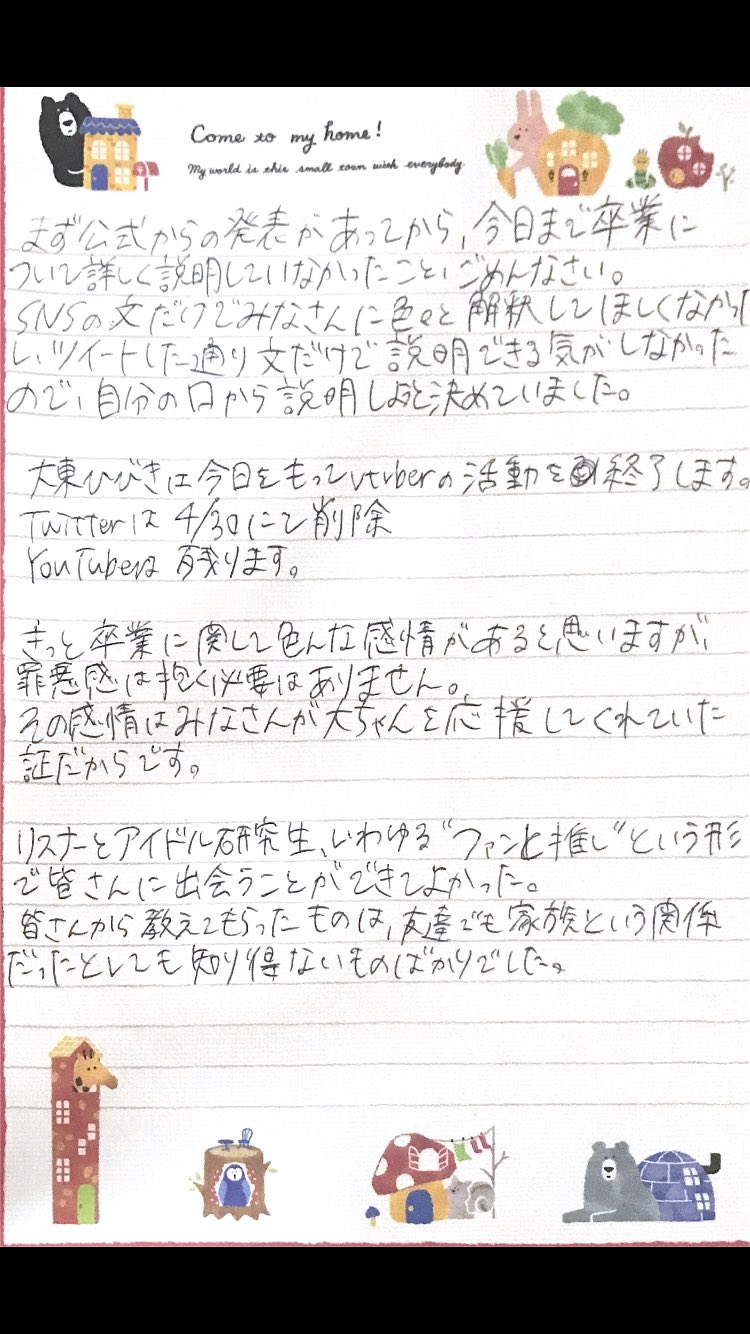 Come to my home!
My world is this small town with everybody.
まず公式からの発表があってから、今日まで卒業に
ついて詳しく説明していなかったこと、ごめんなさい。
SNSの文だけでみなさんに色々と解釈してほしくなかった
し、ツイートした通り文だけで説明できる気がしなかった
ので、自分の口から説明しようと決めていました。
大東ひびきは今日をもってvtuberの活動を終了します。
Twitterは4/30にて削除
YouTubeは残ります。
きっと卒業に関して色んな感情があると思いますが、
罪悪感は抱く必要はありません。
その感情はみなさんが大ちゃんを応援してくれていた
証だからです。
リスナーとアイドル研究生、いわゆる“ファンと推し”という形
で皆さんに出会うことができてよかった。
皆さんから教えてもらったものは、友達でも家族という関係
だったとしても知り得ないものばかりでした。